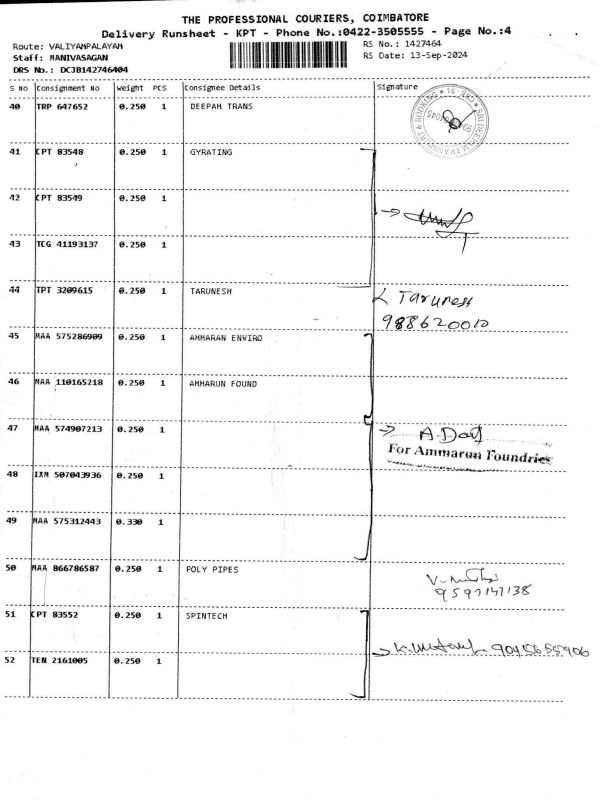 THE PROFESSIONAL COURIERS, COIMBATORE
Delivery Runsheet - KPT - Phone No.:0422-3505555 - Page No.:4
Route: VALIYAMPALAYAM
Staff: MANIVASAGAN
DRS No.: DCJB142746404
RS No.: 1427464
RS Date: 13-Sep-2024
S No Consignment No Weight PCS Consignee Details Signature
40 TRP 647652 0.250 1 DEEPAH TRANS
41 CPT 83548 0.250 1 GYRATING
42 CPT 83549 0.250 1
43 TCG 41193137 0.250 1
44 TPT 3209615 0.250 1 TARUNESH
Tarunesh
988620010
45 MAA 575286909 0.250 1 AMMARAN ENVIRO
46 MAA 110165218 0.250 1 AMMARUN FOUND
47 MAA 574907213 0.250 1
For Ammarun Foundries
48 IXM 507043936 0.250 1
49 MAA 575312443 0.330 1
50 MAA 866786587 0.250 1 POLY PIPES
9597147138
51 CPT 83552 0.250 1 SPINTECH
52 TEN 2161005 0.250 1